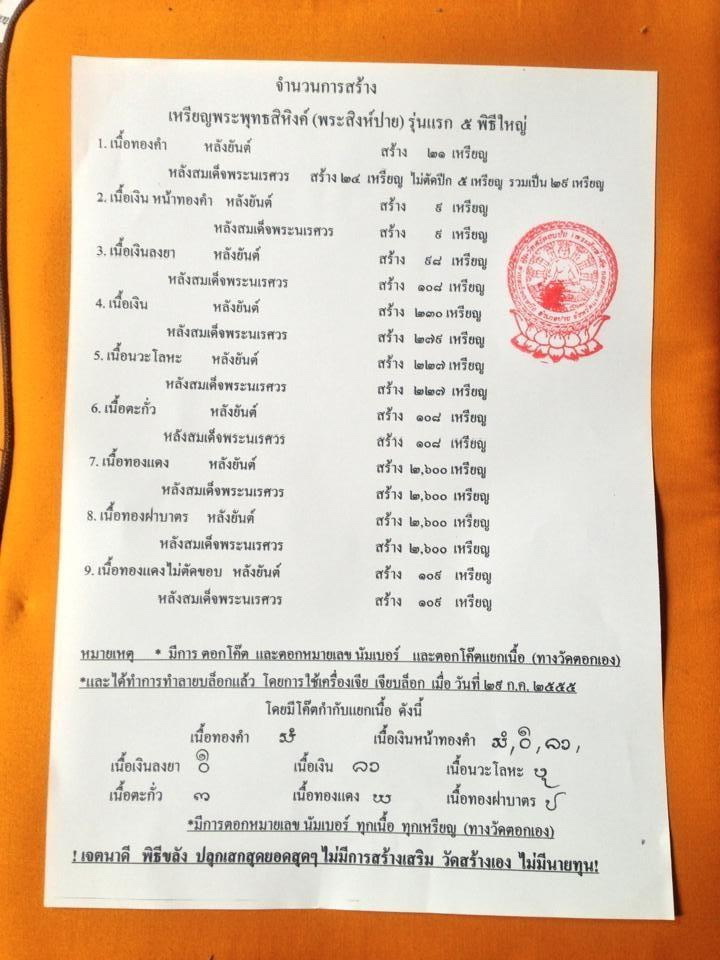 จำนวนการสร้าง
เหรียญพระพุทธสิหิงค์ (พระสิงห์ปาย) รุ่นแรก ๕ พิธีใหญ่
1. เนื้อทองคำ หลังยันต์ สร้าง ๒๑ เหรียญ
หลังสมเด็จพระนเรศวร สร้าง ๒๔ เหรียญ ไม่ตัดปีก ๕ เหรียญ รวมเป็น ๒๙ เหรียญ
2. เนื้อเงิน หน้าทองคำ หลังยันต์ สร้าง ๙ เหรียญ
หลังสมเด็จพระนเรศวร สร้าง ๙ เหรียญ
3. เนื้อเงินลงยา หลังยันต์ สร้าง ๙๘ เหรียญ
หลังสมเด็จพระนเรศวร สร้าง ๑๐๘ เหรียญ
4. เนื้อเงิน หลังยันต์ สร้าง ๒๓๐ เหรียญ
หลังสมเด็จพระนเรศวร สร้าง ๒๗๙ เหรียญ
5. เนื้อนวะโลหะ หลังยันต์ สร้าง ๒๒๗ เหรียญ
หลังสมเด็จพระนเรศวร สร้าง ๒๒๗ เหรียญ
6. เนื้อตะกั่ว หลังยันต์ สร้าง ๑๐๘ เหรียญ
หลังสมเด็จพระนเรศวร สร้าง ๑๐๘ เหรียญ
7. เนื้อทองแดง หลังยันต์ สร้าง ๒,๖๐๐ เหรียญ
หลังสมเด็จพระนเรศวร สร้าง ๒,๖๐๐ เหรียญ
8. เนื้อทองฝาบาตร หลังยันต์ สร้าง ๒,๖๐๐ เหรียญ
หลังสมเด็จพระนเรศวร สร้าง ๒,๖๐๐ เหรียญ
9. เนื้อทองแดงไม่ตัดขอบ หลังยันต์ สร้าง ๑๐๙ เหรียญ
หลังสมเด็จพระนเรศวร สร้าง ๑๐๙ เหรียญ
หมายเหตุ * มีการ ตอกโค๊ต และตอกหมายเลข นัมเบอร์ และตอกโค๊ตแยกเนื้อ (ทางวัดตอกเอง)
*และได้ทำการทำลายบล็อกแล้ว โดยการใช้เครื่องเจีย เจียบล็อก เมื่อ วันที่ ๒๙ ก.ค. ๒๕๕๕
โดยมีโค๊ตกำกับแยกเนื้อ ดังนี้
เนื้อทองคำ เนื้อเงินหน้าทองคำ
เนื้อเงินลงยา เนื้อเงิน เนื้อนวะโลหะ
เนื้อตะกั่ว เนื้อทองแดง เนื้อทองฝาบาตร
*มีการตอกหมายเลข นัมเบอร์ ทุกเนื้อ ทุกเหรียญ (ทางวัดตอกเอง)
! เจตนาดี พิธีขลัง ปลุกเสกสุดยอดสุดๆ ไม่มีการสร้างเสริม วัดสร้างเอง ไม่มีนายทุน!